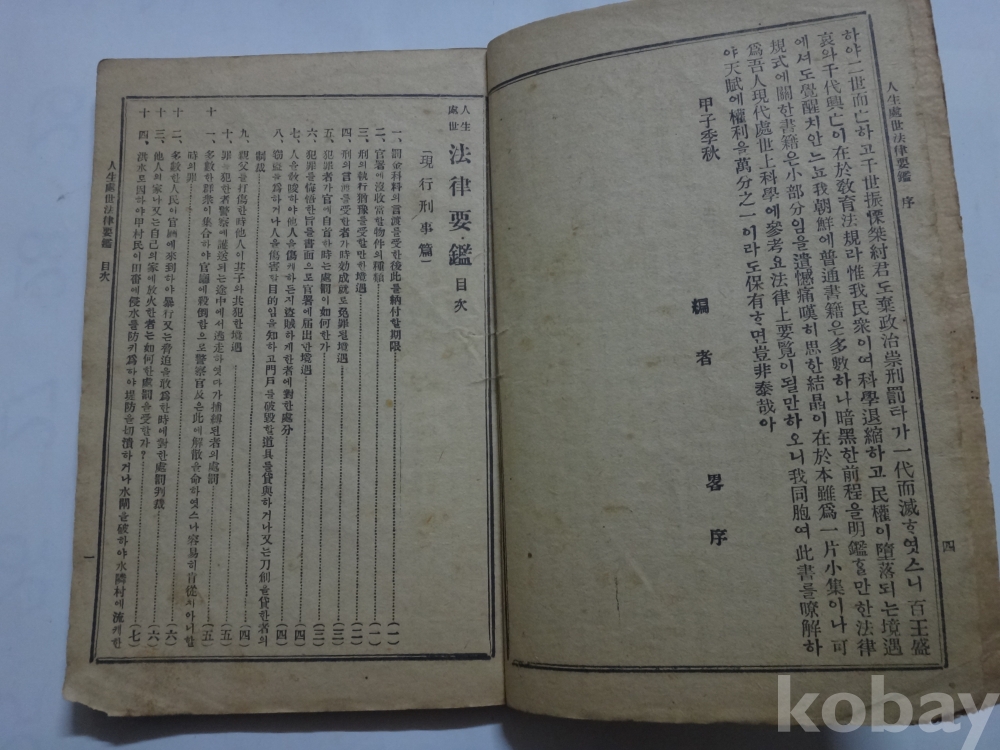 人生處世法律要鑑 序
四
하야二世而亡하고千世振傑桀紂君도棄政治崇刑罰타가一代而滅ᄒᆞ엿스니百王盛
哀와千代興亡이在於敎育法規라惟我民衆이여科學退縮하고民權이墮落되는境遇
에셔도覺醒치안느뇨我朝鮮에普通書籍은多數하나暗黑한前程을明鑑ᄒᆞᆯ만한法律
規式에關한書籍은小部分임을遺憾痛嘆히思한結晶이在於本雖爲一片小集이나可
爲吾人現代處世上科學에參考요法律上要覽이될만하오니我同胞여此書를暸解하
야天賦에權利을萬分之一이라도保有ᄒᆞ면豈非泰哉아
甲子季秋
編者 畧序
人生處世 法律要鑑 目次
(現行刑事篇)
一、罰金科料의言渡를受한後此를納付할期限 (一)
二、官署에沒收當할物件의種類 (一)
三、刑의執行猶豫를受한만한境遇 (二)
四、刑의言渡를受한者가時効成就로免罪될境遇 (二)
五、犯罪者가官에自首한時는處罰이如何한가 (三)
六、犯罪를悔悟한旨를書面으로官署에届出한境遇 (三)
七、人을敎唆하야他人을傷케하든지盜賊하게한者에對한處分 (四)
八、竊盜를爲하거나人을傷害할目的임을知하고門戶를破毀할道具를貸與하거나又는刀劍을貸한者의
制裁 (四)
九、親父를打傷한時他人이其子와共犯한境遇 (四)
十、罪를犯한者警察에遞送되는途中에서逃走하엿다가捕縛된者의處罰 (五)
十一、多數한群衆이集合하야官廳에殺倒함으로警察官及은此에解散을命하엿스나容易히肯從치아니할
時의罪 (五)
十二、多數한人民이官廳에來到하야暴行又는脅迫을敢爲한時에對한處罰判裁 (六)
十三、他人의家나又는自己의家에放火한者는如何한處罰을受할가? (六)
十四、洪水로因하야甲村民이田畓에侵水를防키爲하야堤防을切潰하거나水閘을破하야水隣村에流케한 (七)
人生處世法律要鑑 目次
一
kobay